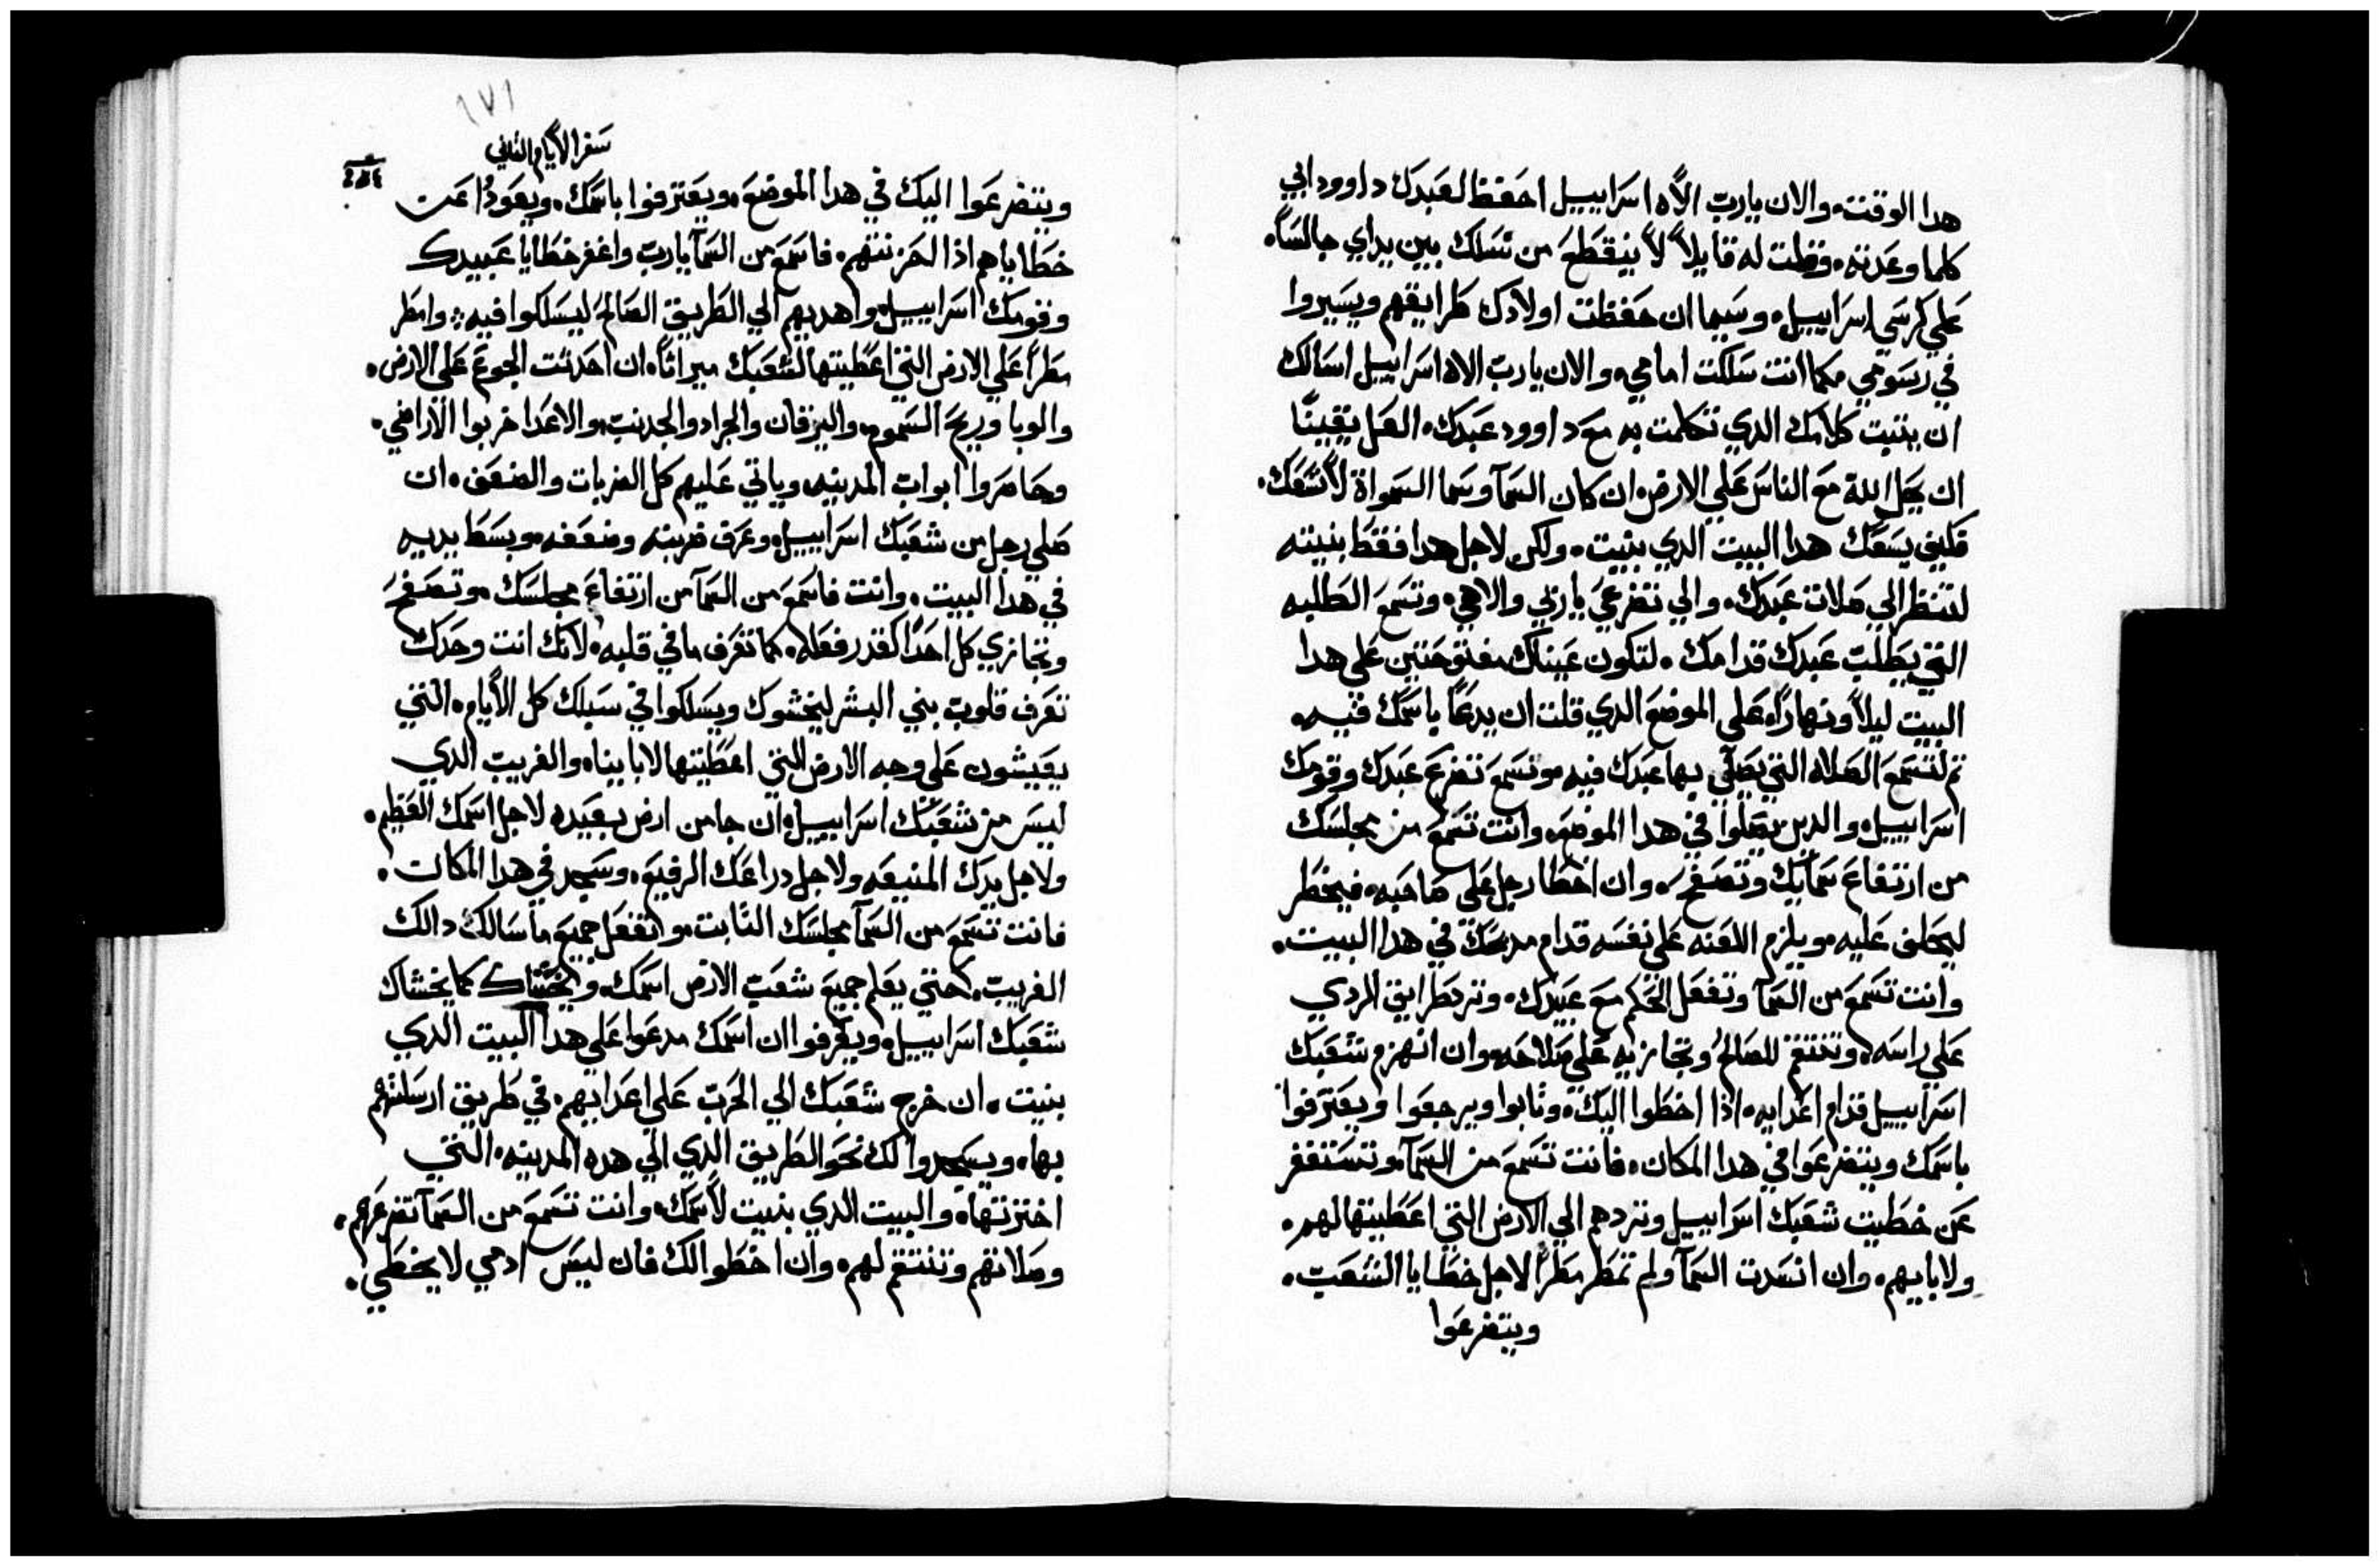 هدا الوقت، والان يارب الاه اسراييل احفظ لعبدك داوود ابي
كلما وعدته، وقلت له قايلاً لا ينقطع من نسلك بين يداي جالساً،
علي كرسي اسراييل، وسيما ان حفظت اولادك طرايقهم ويسيروا
في رسومي، كما انت سلكت امامي، والان يارب الاه اسراييل اسالك
ان يتبت كلامك الدي تكلمت به مع داوود عبدك، العل يقيناً
ان يحل الله مع الناس علي الارض، ان كان السمآ وسما السمواة لا تسعك،
فكيف يسعك هدا البيت الدي بنيت، ولكن لاجل هدا فقط بنيته
لتنظر الي صلات عبدك، والي تضرعي ياربي والاهي، وتسمع الطلبه
التي يطلب عبدك قدامك، لتكون عيناك مفتوحتين علي هدا
البيت ليلاً ونهاراً، علي الموضع الدي قلت ان يدعا باسمك فيه،
تم لتسمع الصلاه التي يصلي بها عبدك فيه، وتسمع تضرع عبدك وقومك
اسراييل، والدين يصلوا في هدا الموضع، وانت تسمع من مجلسك
من ارتفاع سمايك وتصفح، وان اخطا رجل علي صاحبه، فيخطر
ليحلف عليه، ويلزم اللعنه علي نفسه قدام مدبحك في هدا البيت،
وانت تسمع من السمآ وتفعل الحكم مع عبيدك، وترد طرايق الردي
علي راسه، وتنتقم للصالح وتجازيه علي صلاحه، وان انهزم شعبك
اسراييل قدام اعدايه، اذا اخطوا اليك، وتابوا ويرجعوا ويعترفوا
باسمك ويتضرعوا في هدا المكان، فانت تسمع من السمآ، وتستغفر
عن خطيت شعبك اسراييل وتردهم الي الارض التي اعطيتها لهم،
ولابايهم، وان انسدت السمآ ولم تمطر مطراً لاجل خطايا الشعب،
ويتضرعوا
١٧١
سفر الايام التاني
ويتضرعوا اليك في هدا الموضع، ويعترفوا باسمك، ويعودوا عن
خطاياهم اذا احزنتهم، فاسمع من السمآ يارب واغفر خطايا عبيدك
وقومك اسراييل، واهديهم الي الطريق الصالح ليسلكوا فيه، وامطر
مطراً علي الارض التي اعطيتها لشعبك ميراثاً، ان احدثت الجوع علي الارض،
والوبا وريح السموم، واليرقان والجراد والجدب، والاعدا خربوا الاراضي،
وحاصروا ابواب المدينه، وياتي عليهم كل الضربات والضعف، ان
صلي رجل من شعبك اسراييل، وعرف ضربته وضعفه، وبسط يديه
في هدا البيت، وانت فاسمع من السمآ من ارتفاع مجلسك، وتصفح
وتجازي كل احداً كقدر فعله، كما تعرف ما في قلبه، لانك انت وحدك
تعرف قلوب بني البشر ليخشوك ويسلكوا في سبلك كل الايام، التي
يعيشون علي وجه الارض التي اعطيتها لابايناه والغريب الدي
ليس من شعبك اسراييل، ان جا من ارض بعيده لاجل اسمك العظيم،
ولاجل يدك المنيعه ولاجل دراعك الرفيع، وسجد في هدا المكان،
فانت تسمع من السمآ مجلسك التابت، وتفعل جميع ما سالك دالك
الغريب، حتي يعلم جميع شعب الارض اسمك، ويخشاك كما يخشاك
شعبك اسراييل، ويعرفوا ان اسمك مدعوا علي هدا البيت الدي
بنيت، ان خرج شعبك الي الحرب علي اعدايهم، في طريق ارسلتهم
بها، ويسجدوا لك نحو الطريق الدي الي هده المدينه، التي
اخترتها، والبيت الدي بنيت لاسمك، وانت تسمع من السمآ تضرعهم،
وصلاتهم وتنتقم لهم، وان اخطوا لك فان ليس ادمي لا يخطي،